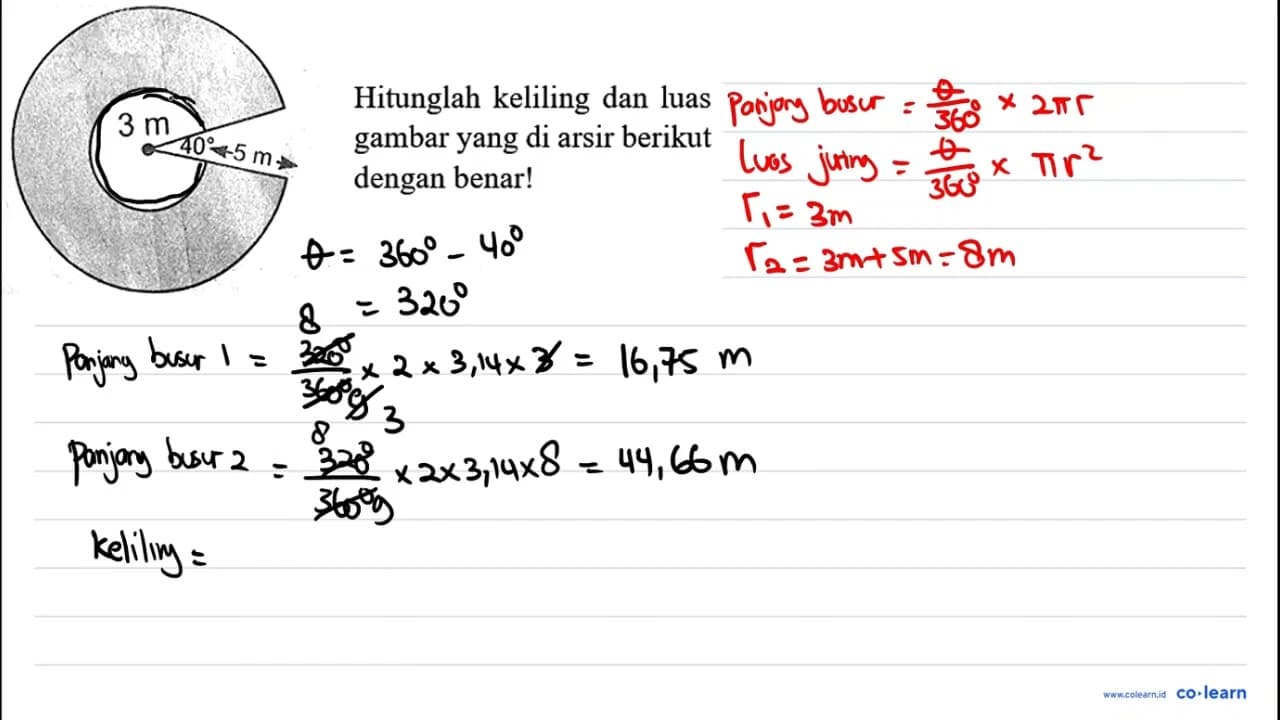 3 m
40°
5 m
Hitunglah keliling dan luas
gambar yang di arsir berikut
dengan benar!
Panjang busur = θ/360° × 2πr
Luas juring = θ/360° × πr²
r₁ = 3m
r₂ = 3m + 5m = 8m
θ = 360° - 40°
= 320°
8
Panjang busur 1 = 320°/360° × 2 × 3,14 × 3 = 16,75 m
9
3
8
Panjang busur 2 = 320°/360° × 2 × 3,14 × 8 = 44,66 m
9
keliling =
www.colearn.id co·learn